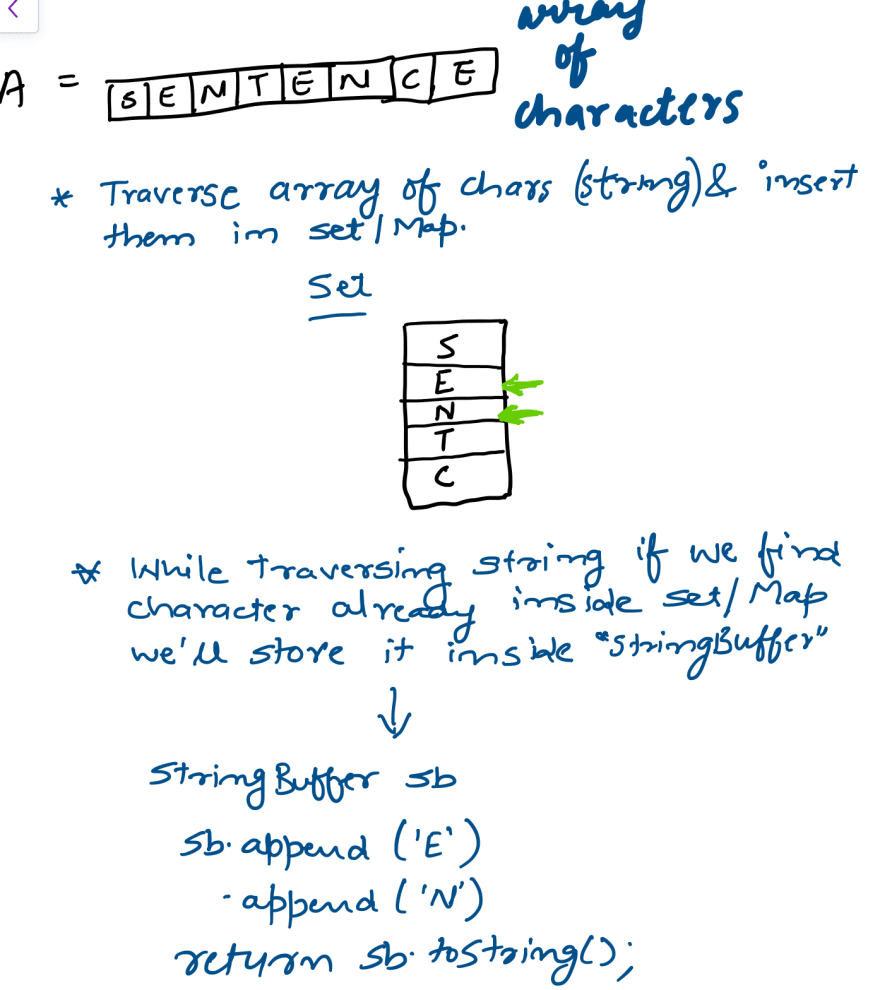 array
of
characters
A = S E N T E N C E
* Traverse array of chars (string) & insert
them in set / Map.
Set
S
E
N
T
C
* While traversing string if we find
character already inside set / Map
we'll store it inside "StringBuffer"
StringBuffer sb
sb.append ('E')
.append ('N')
return sb.toString();